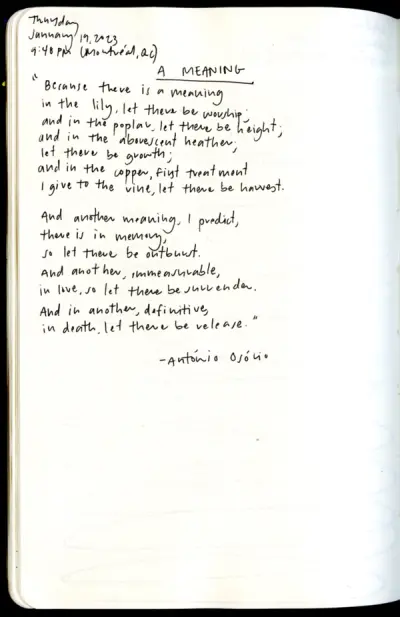 Thursday
January 19, 2023
9:40 PM (Montréal, QC)
A MEANING
"Because there is a meaning
in the lily, let there be worship;
and in the poplar, let there be height;
and in the aborescent heather,
let there be growth;
and in the copper, first treatment
I give to the vine, let there be harvest.
And another meaning, I predict,
there is in memory,
so let there be outburst.
And another, immeasurable,
in love, so let there be surrender.
And in another, definitive,
in death, let there be release."
- António Osório